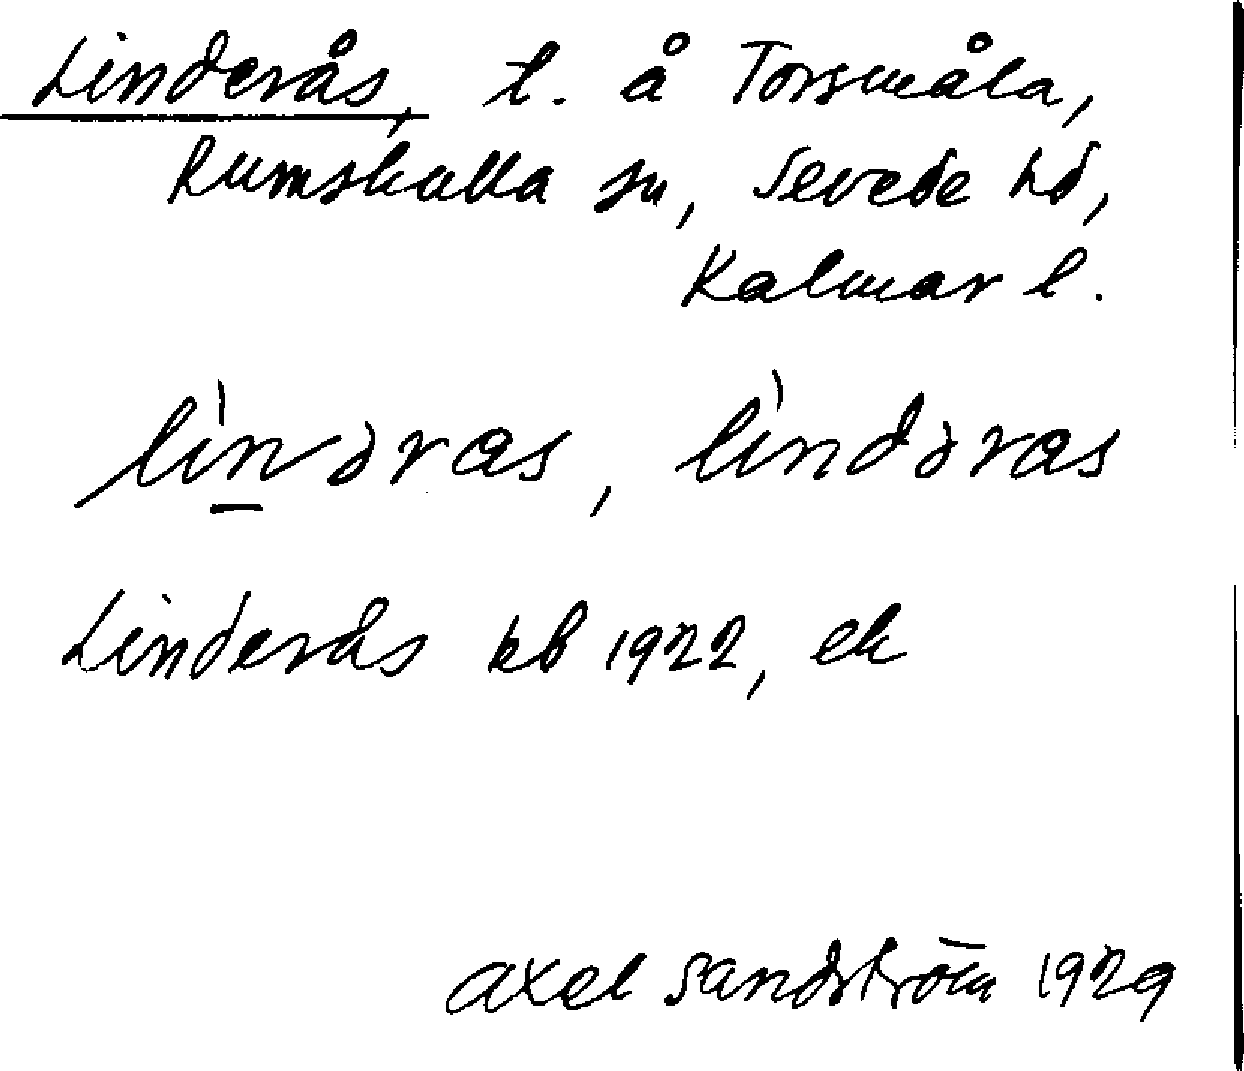 Linderås, t. å Torsmåla,
Rumskulla sn, Sevede hd,
Kalmar l.
lìnəras, lìndəras
Linderås kb 1922, ek
Axel Sandström 1929